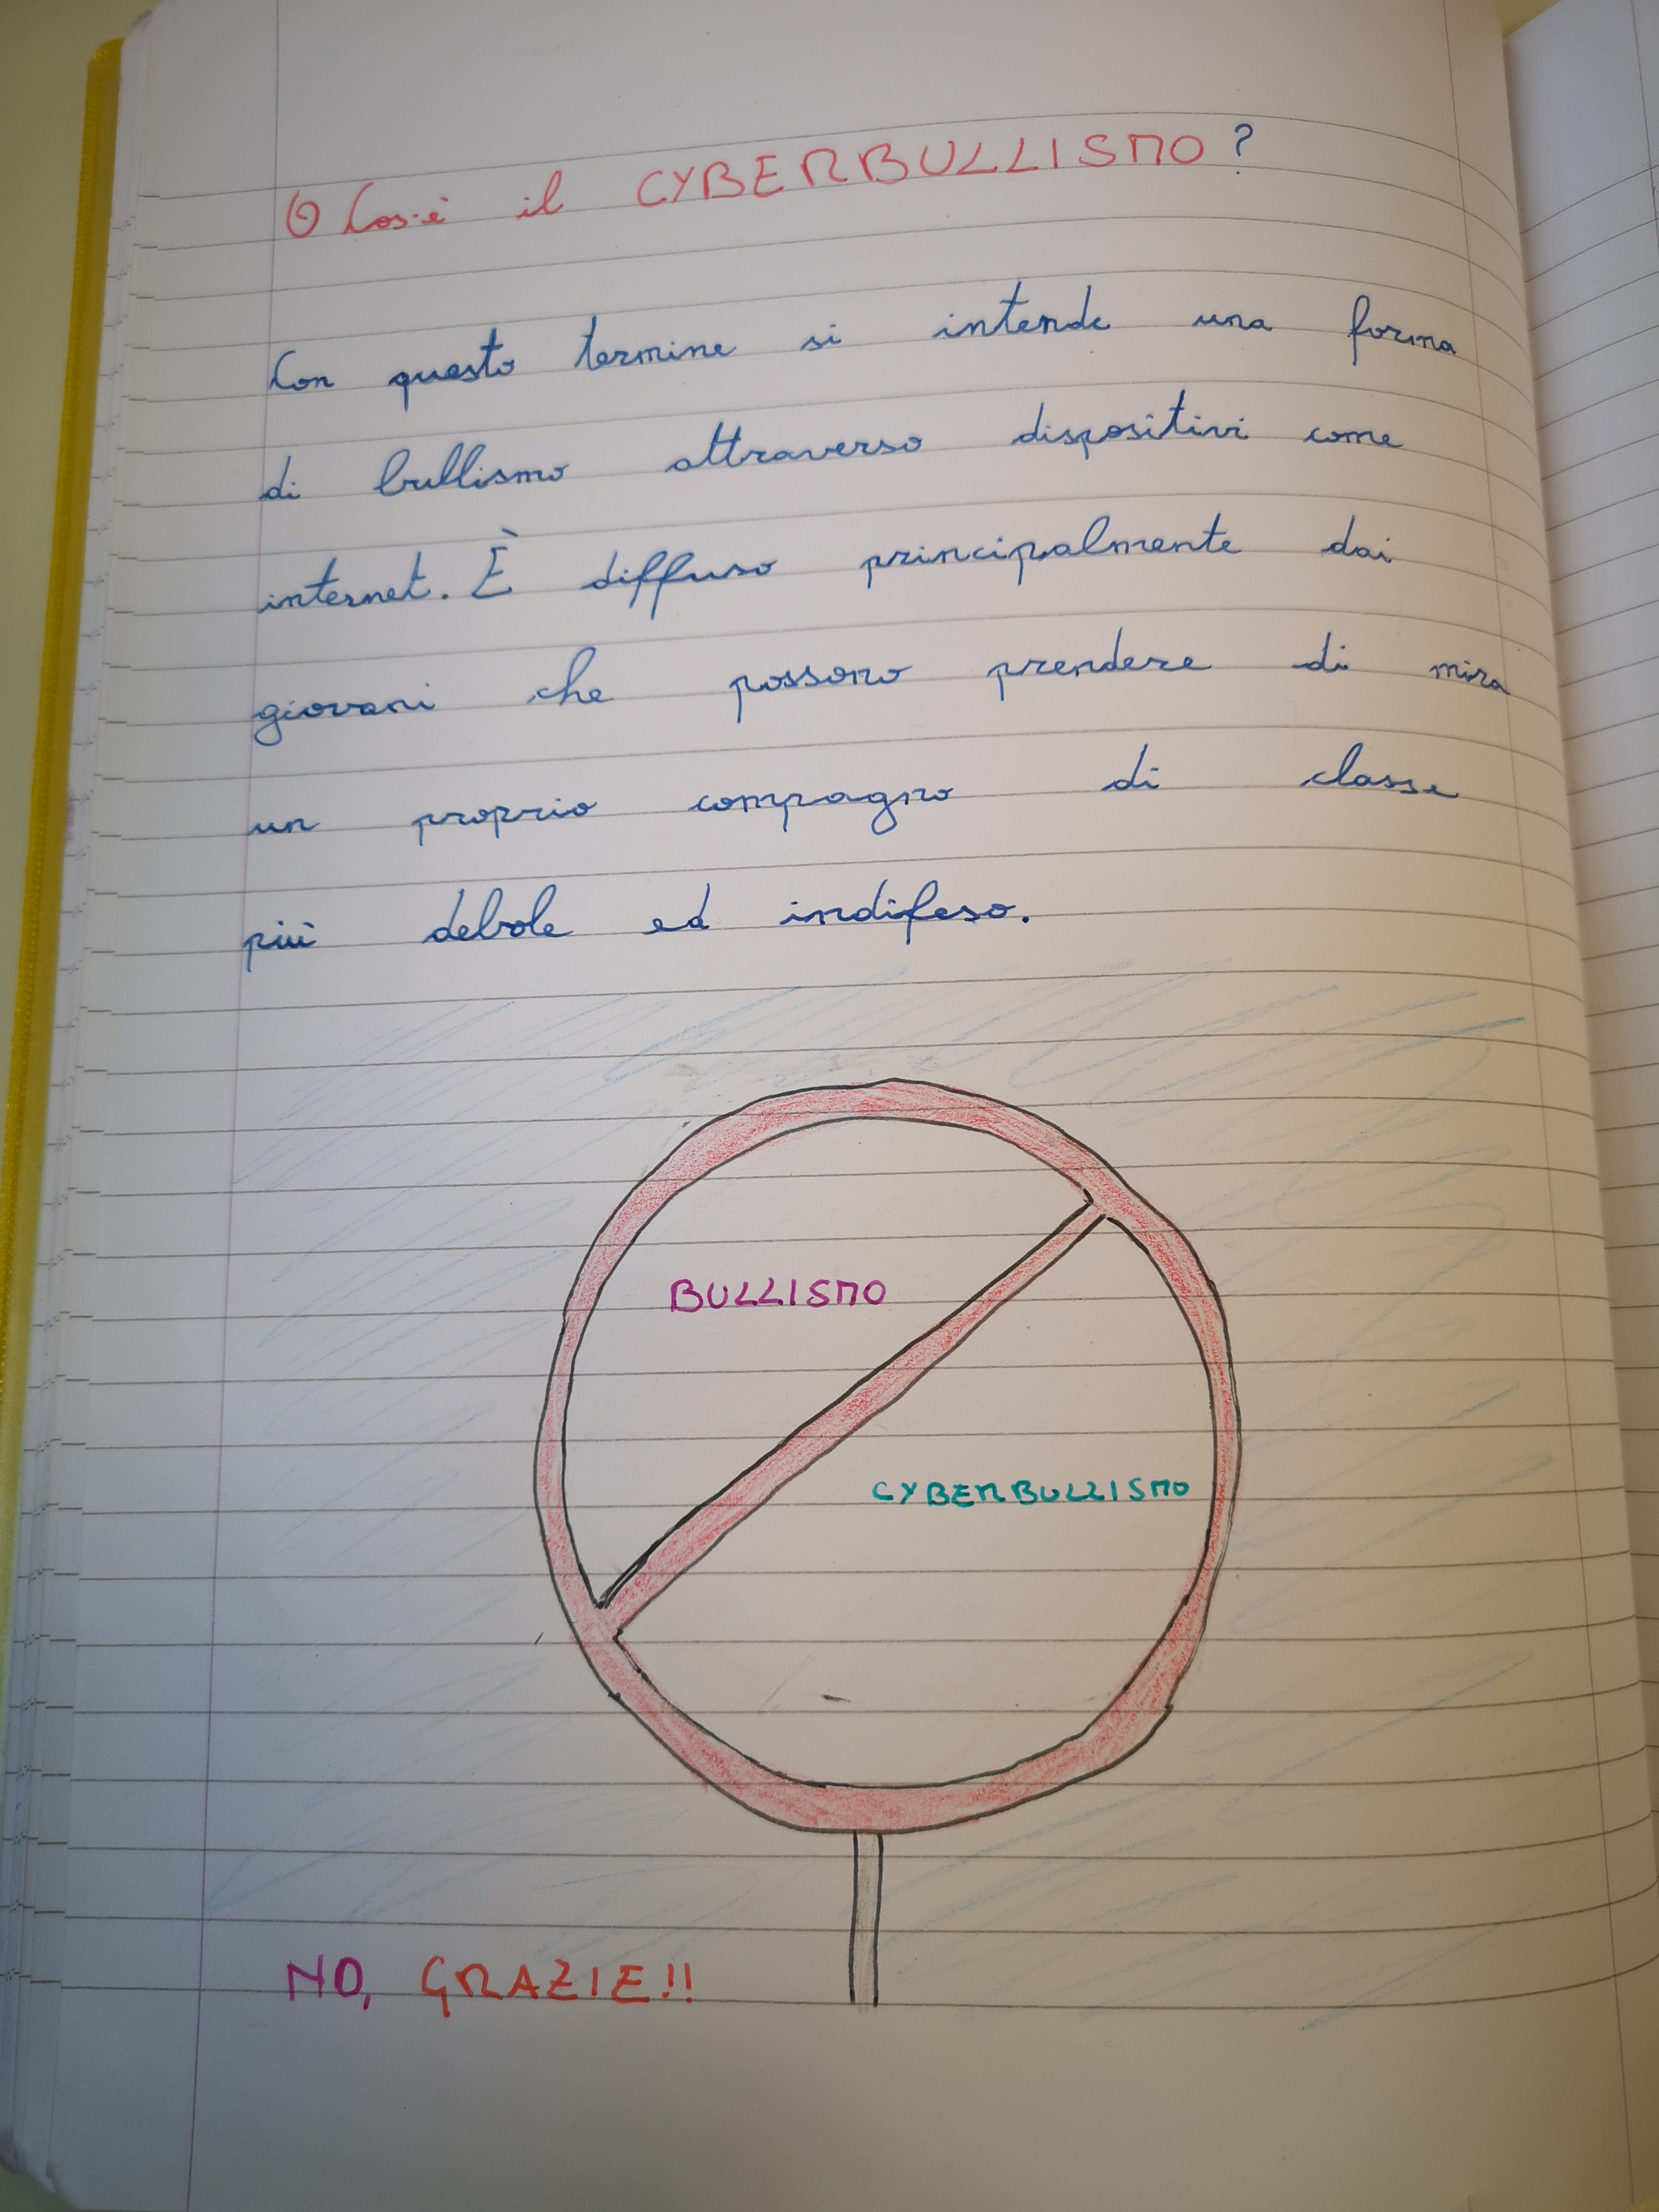 Cos'è il CYBERBULLISMO?
Con questo termine si intende una forma
di bullismo attraverso dispositivi come
internet. È diffuso principalmente dai
giovani che possono prendere di mira
un proprio compagno di classe
più debole ed indifeso.
BULLISMO
CYBERBULLISMO
NO, GRAZIE!!